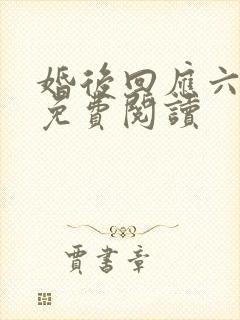 婚後回應六
免費閱讀
賈書章